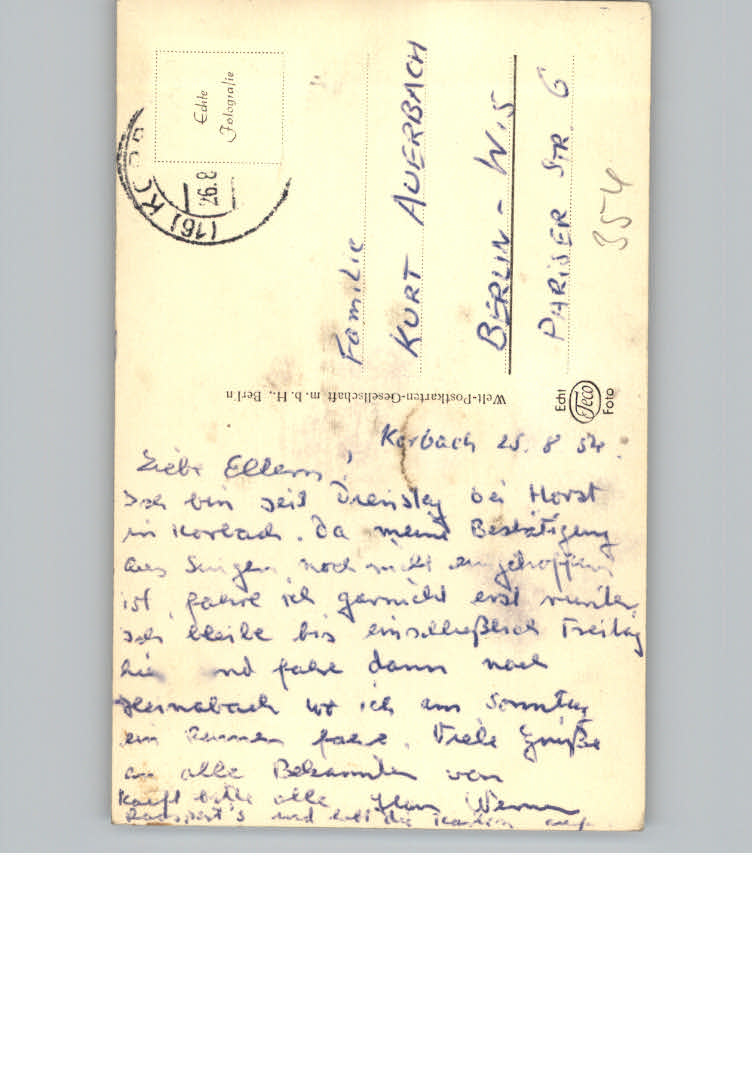 Echte
Fotografie
(16) KO
26.8
Familie
KURT AUERBACH
BERLIN - W.15
PARISER STR. 6
354
Welt-Postkarten-Gesellschaft m. b. H., Berlin
Echt
Teco
Foto
Korbach 25. 8 54.
Liebe Eltern!
Ich bin seit Dienstag bei Horst
in Korbach. Da meine Bestätigung
aus Singen noch nicht eingetroffen
ist, fahre ich garnicht erst runter.
Ich bleibe bis einschließlich Freitag
hier und fahre dann nach
wo ich am Sonntag
ein Rennen fahre. Viele Grüße
an alle Bekannten von
Kauft bitte alle Werner
und hebt die Karten auf